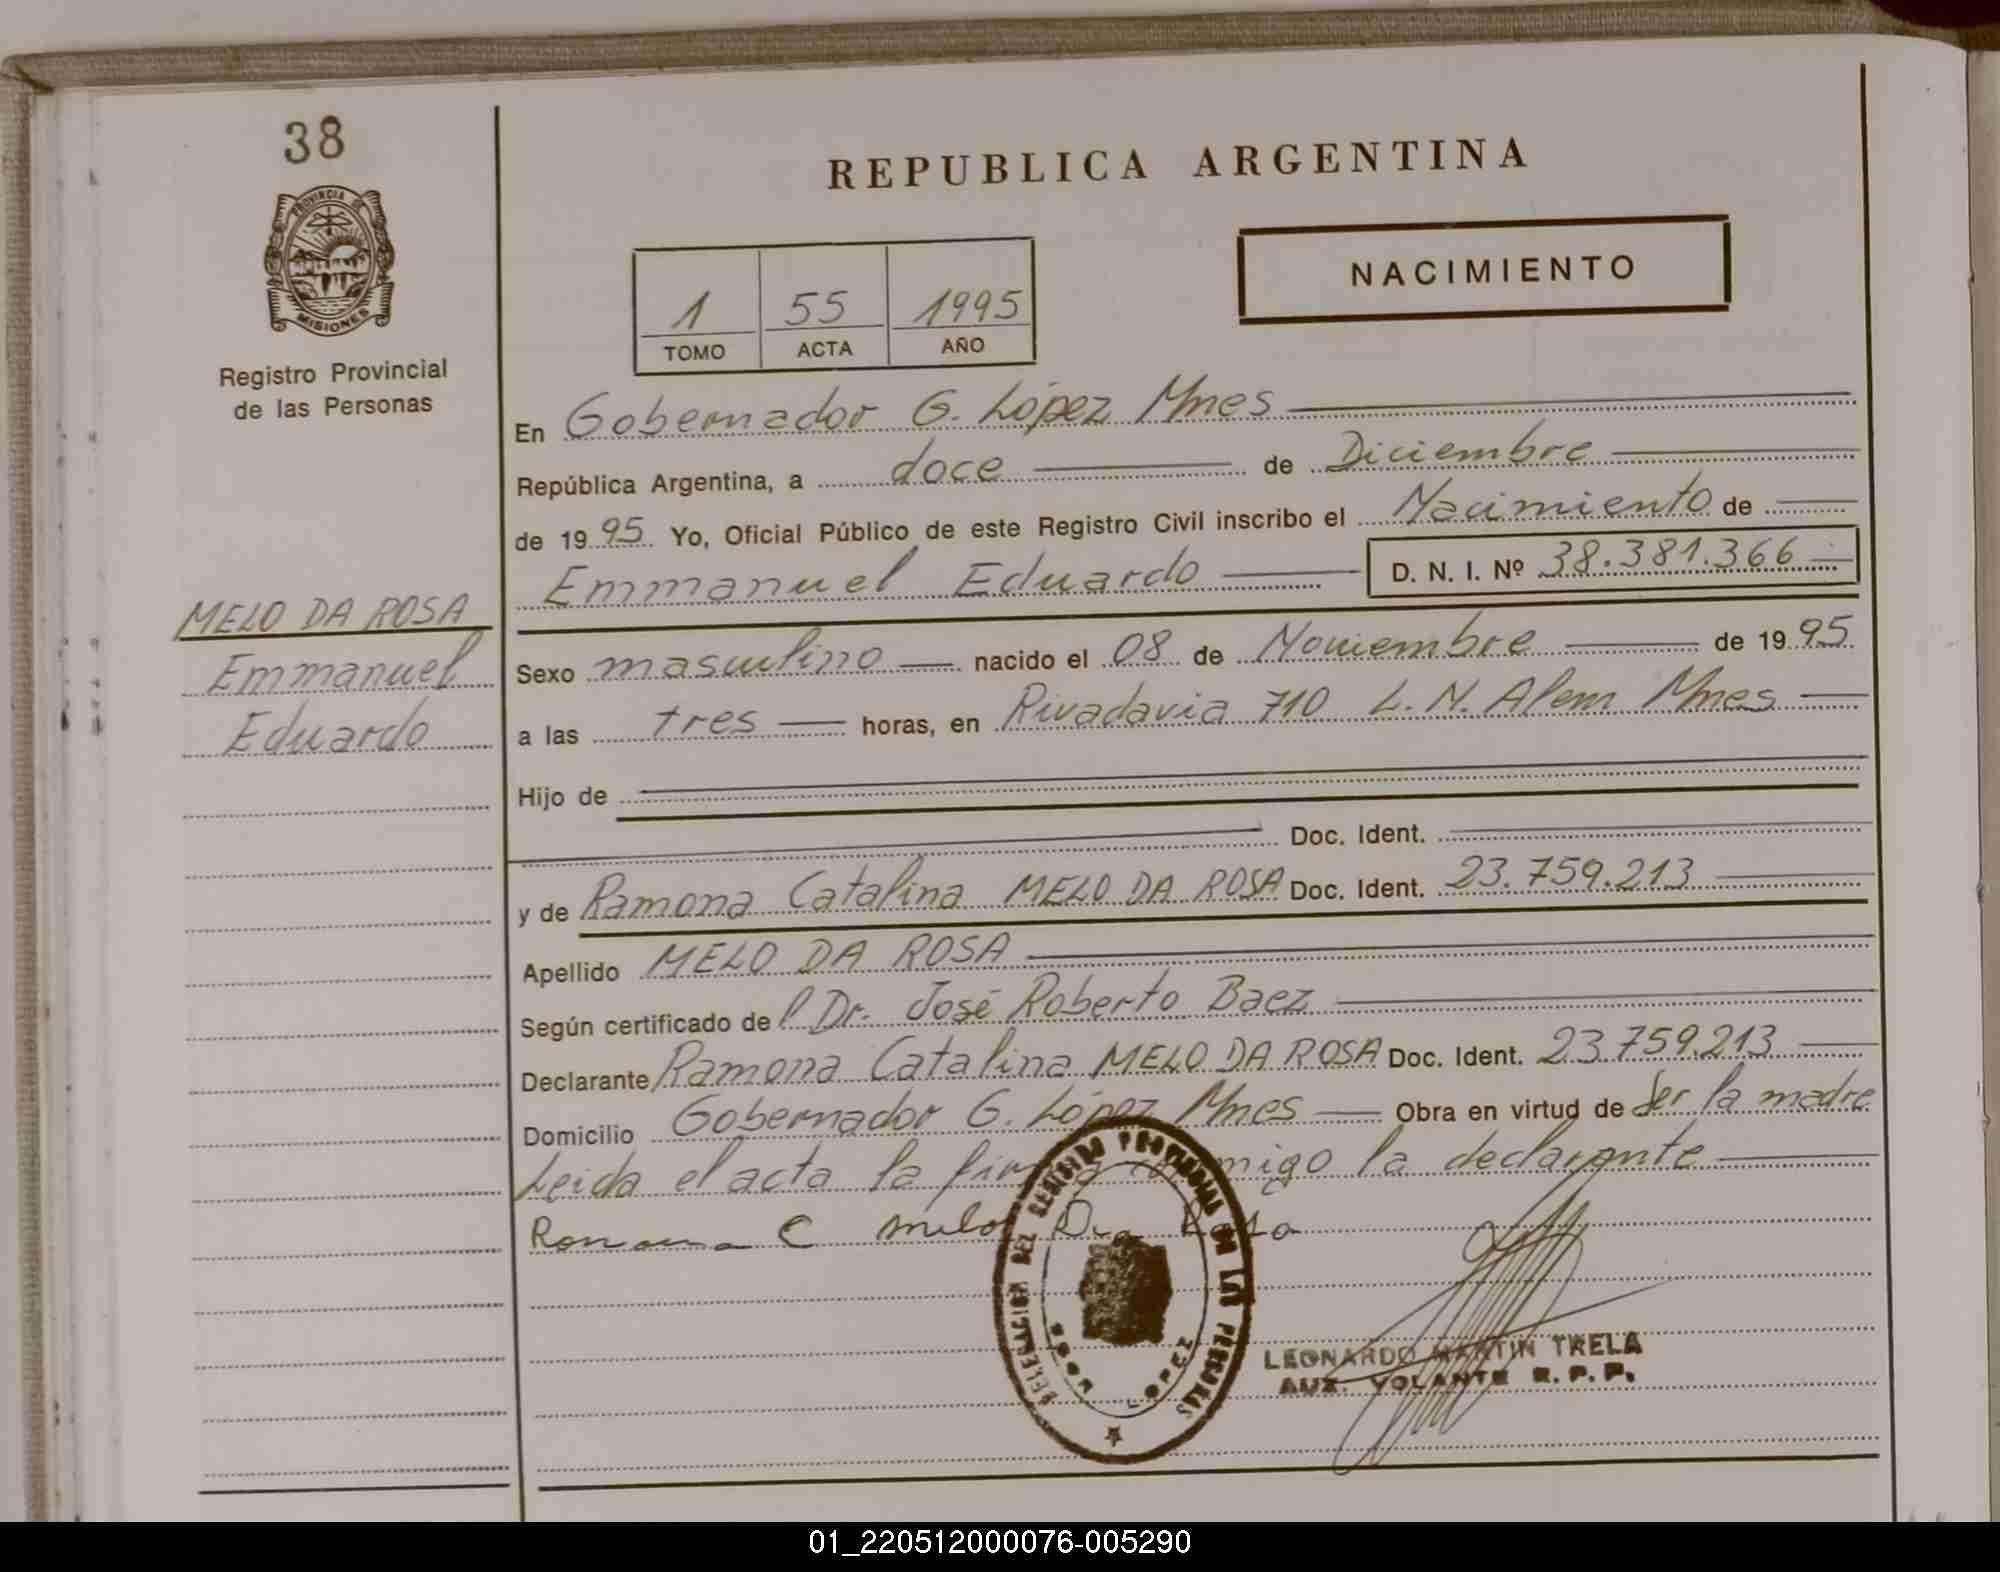 38
PROVINCIA DE
MISIONES
Registro Provincial
de las Personas
MELO DA ROSA
Emmanuel
Eduardo
REPUBLICA ARGENTINA
1 55 1995
TOMO ACTA AÑO
NACIMIENTO
En Gobernador G. López Mnes
República Argentina, a doce de Diciembre
de 1995 Yo, Oficial Público de este Registro Civil inscribo el Nacimiento de
Emmanuel Eduardo D. N. I. Nº 38.381.366
Sexo masculino nacido el 08 de Noviembre de 1995
a las tres horas, en Rivadavia 710 L. N. Alem Mnes
Hijo de
Doc. Ident.
y de Ramona Catalina MELO DA ROSA Doc. Ident. 23.759.213
Apellido MELO DA ROSA
Según certificado del Dr. José Roberto Baez
Declarante Ramona Catalina MELO DA ROSA Doc. Ident. 23.759.213
Domicilio Gobernador G. López Mnes Obra en virtud de ser la madre
Leida el acta la firma conmigo la declarante
Ramona C melo Da Rosa
DE LAS
LEONARDO MARTIN TRELA
AUX. VOLANTE R. P. P.
01_220512000076-005290